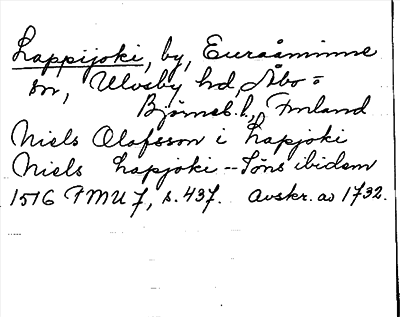 Lappijoki, by, Euraåminne
sn, Ulvsby hd, Åbo=
Björneb. l., Finland
Niels Olafsson i Lapjoki
Niels Lapjoki -- Töns ibidem
1516 FMU 7, s. 437. Avskr. av 1732.